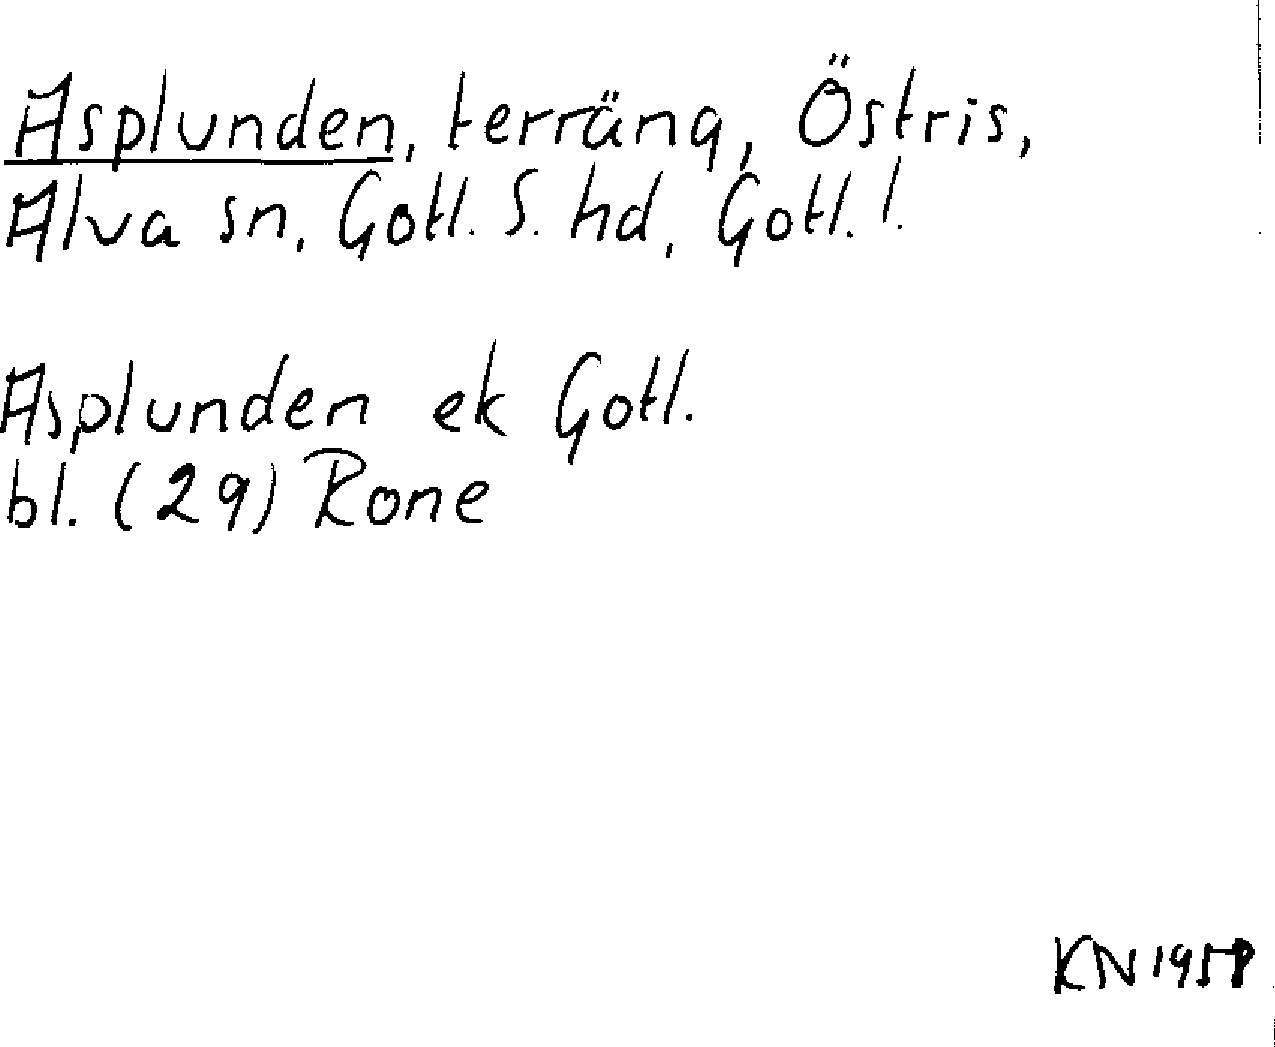 Asplunden, terräng, Östris,
Alva sn, Gotl. S. hd, Gotl. !.
Asplunden ek Gotl.
bl. (29) Rone
KN 1958